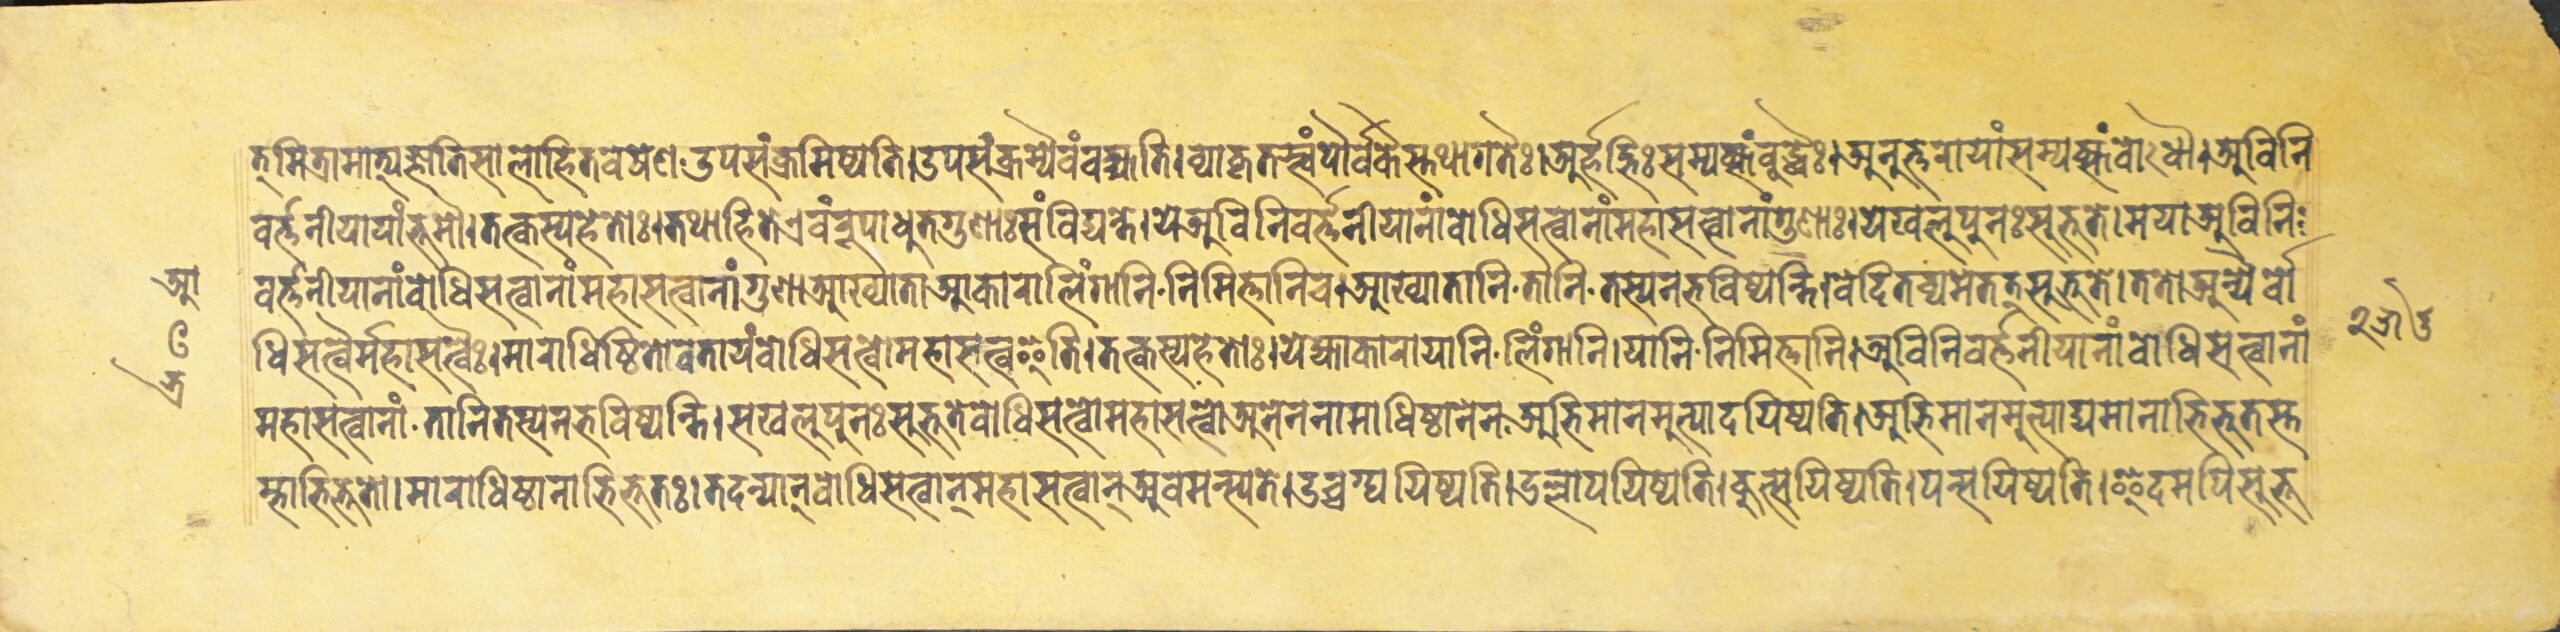 त्मित्रामात्यज्ञातिसालोहितवेषेण·उपसंक्रमिष्यति।उपसंक्रम्यैवंवक्ष्यति।व्याकृतस्त्वंपौर्वकैस्तथागतैः।अर्हद्भिःसम्यक्संबुद्धैः।अनुत्तरायांसम्यक्संबोधौ।अविनि
वर्त्तनीयायांभूमौ।तत्कस्यहेतोः।तथाहितेएवंरूपाधुतगुणाःसंविद्यन्ते।येअविनिवर्त्तनीयानांबोधिसत्वानांमहासत्वानांगुणाः।येखलुपुनःसुभूते।मयाअविनि
वर्त्तनीयानांबोधिसत्वानांमहासत्वानांगुणाआख्याताआकारालिंगानि·निमित्तानिच।आख्यातानि·तानि·तस्यनभविष्यन्ति।वेदितव्यमेतत्सुभूते।ततोअन्यैर्बो
धिसत्वैर्महासत्वैः।माराधिष्ठितोवतायंबोधिसत्वोमहासत्वइति।तत्कस्यहेतोः।येह्याकारायानि·लिंगानि।यानि·निमित्तानि।अविनिवर्त्तनीयानांबोधिसत्वानां
महासत्वानां·तानितस्यनभविष्यन्ति।सखलुपुनःसुभूतेबोधिसत्वोमहासत्वोअनेननामाधिष्ठानेन·अभिमानमुत्पादयिष्यति।अभिमानमुत्पाद्यमानाभिभूतस्त
म्भाभिभूतो।माराधिष्ठानाभिभूतः।तदन्यान्बोधिसत्वान्महासत्वान्अवमन्स्यते।उच्चग्घयिष्यति।उल्लापयिष्यति।कुत्सयिष्यति।पन्सयिष्यति।इदमपिसुभू